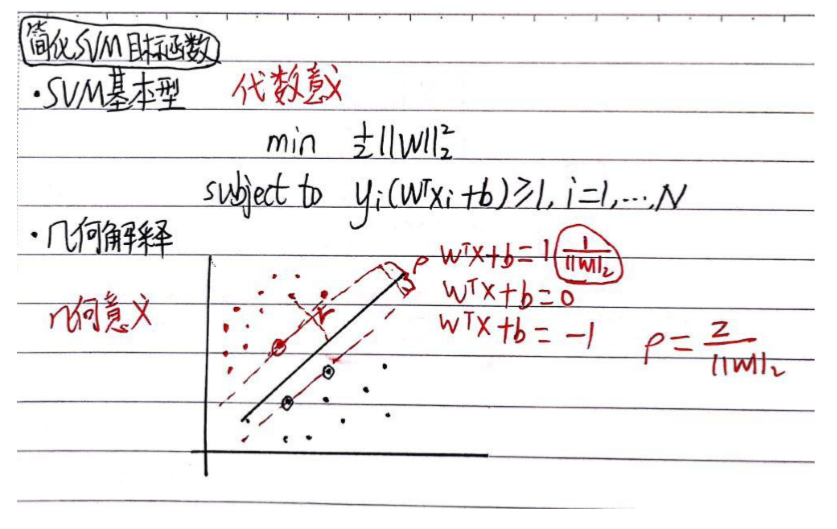 简化SVM目标函数
·SVM基本型 代数意义
min ½||W||₂²
subject to yᵢ(WᵀXᵢ+b)≥1, i=1,…,N
·几何解释
ρ WᵀX+b=1 1/||W||₂
WᵀX+b=0
几何意义 r WᵀX+b=-1 ρ=2/||W||₂